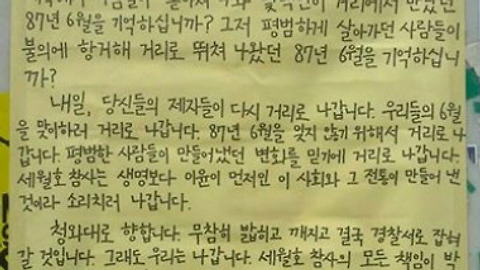 거리에서 만났던
87년 6월을 기억하십니까? 그저 평범하게 살아가던 사람들이
불의에 항거해 거리로 뛰쳐 나왔던 87년 6월을 기억하십니
까?
내일, 당신들의 제자들이 다시 거리로 나갑니다. 우리들의 6월
을 맞이하러 거리로 나갑니다. 87년 6월을 잊지 않기 위해서 거리로 나
갑니다. 평범한 사람들이 만들어냈던 변화를 믿기에 거리로 나갑니다.
세월호 참사는 생명보다 이윤이 먼저인 이 사회와 그 전통이 만들어 낸
것이라 소리치러 나갑니다.
청와대로 향합니다. 무참히 밟히고 깨지고 결국 경찰서로 잡혀
갈 것입니다. 그래도 우리는 나갑니다. 세월호 참사의 모든 책임이 박